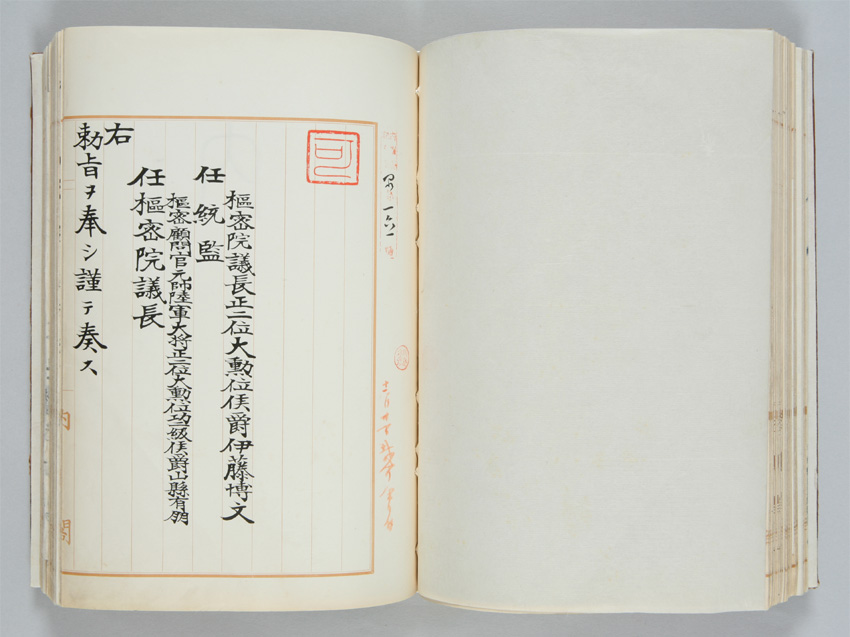 可
一六一
樞密院議長正二位大勲位侯爵伊藤博文
任統監
樞密顧問官元帥陸軍大将正二位大勲位功一級侯爵山縣有朋
任樞密院議長
右
勅旨ヲ奉シ謹テ奏ス
内閣